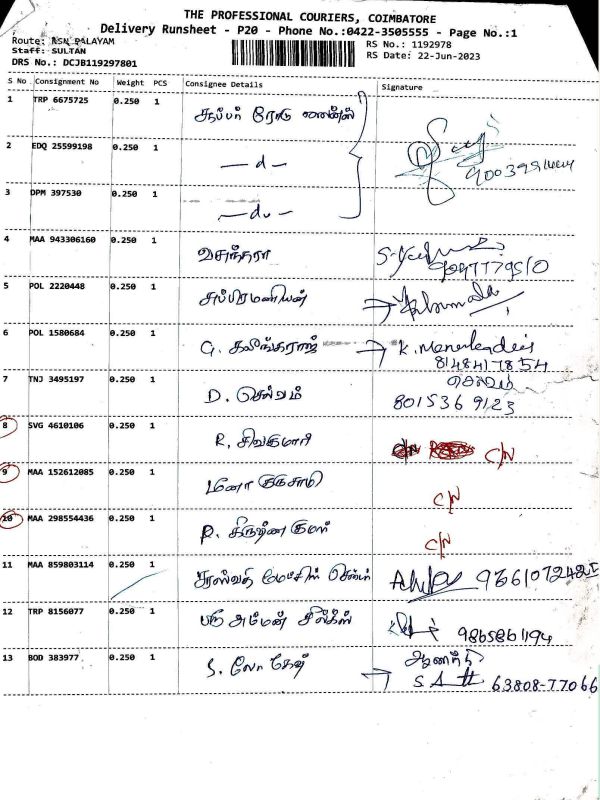 THE PROFESSIONAL COURIERS, COIMBATORE
Delivery Runsheet - P20 - Phone No.:0422-3505555 - Page No.:1
Route: RSN PALAYAM
Staff: SULTAN
DRS No.: DCJB119297801
RS No.: 1192978
RS Date: 22-Jun-2023
S No Consignment No Weight PCS Consignee Details Signature
1 TRP 6675725 0.250 1 சூப்பர் ரோடு லைன்ஸ்
2 EDQ 25599198 0.250 1 — d —
3 DPM 397530 0.250 1 — do —
4 MAA 943306160 0.250 1 வசுந்தரா
5 POL 2220448 0.250 1 சுப்பிரமணியன்
6 POL 1580684 0.250 1 G. கலிங்கராஜ் → K.
8148417854
7 TNJ 3495197 0.250 1 D. செல்வம் செல்வம்
8015369123
8 SVG 4610106 0.250 1 R. சிவகுமார் C/N
9 MAA 152612085 0.250 1 மீனா குருசாமி C/N
10 MAA 298554436 0.250 1 P. கிருஷ்ண குமார் C/N
11 MAA 859803114 0.250 1 சரஸ்வதி
12 TRP 8156077 0.250 1 அம்மன் சில்க்ஸ் 9865861194
13 BOD 383977 0.250 1 S. லோகேஷ் ஆனந்தி
→ 63808-77066